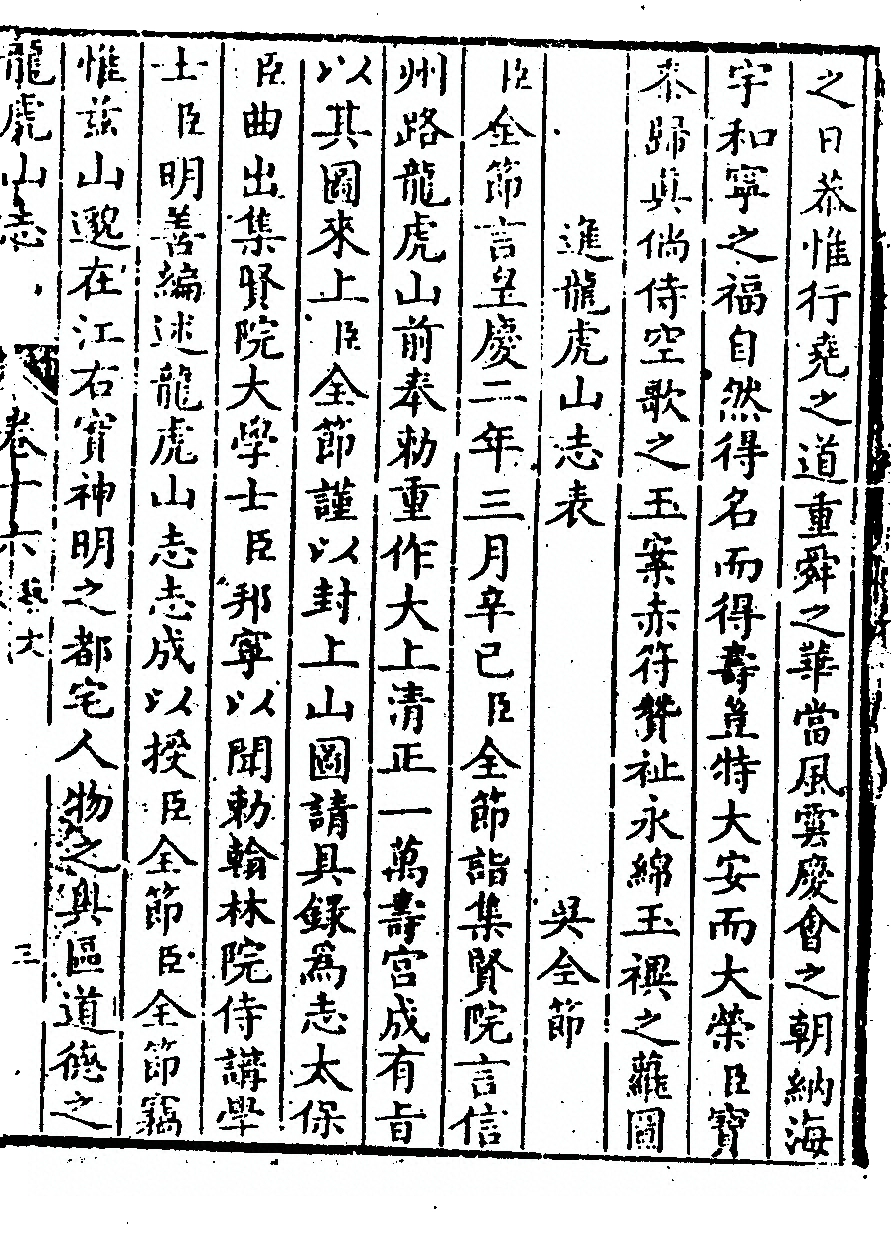 之日恭惟行堯之道重舜之華當風雲慶會之朝納海
宇和寧之福自然得名而得壽豈特大安而大榮臣寶
泰歸真倘侍空歌之玉案赤符贊祉永綿玉禩之蘿圖
進龍虎山志表 吳全節
臣全節言皇慶二年三月辛巳臣全節詣集賢院言信
州路龍虎山前奉勅重作大上清正一萬壽宮成有旨
以其圖來上臣全節謹以封上山圖請具錄爲志太保
臣曲出集賢院大學士臣邦寧以聞勅翰林院侍講學
士臣明善編述龍虎山志志成以授臣全節臣全節竊
惟茲山邈在江右實神明之都宅人物之奧區道德之
龍虎山志 卷十六 藝文 三